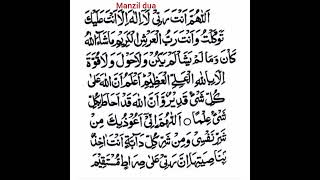 Manzil dua
اَللّٰهُمَّ اَنْتَ رَبِّیْ لَآ اِلٰهَ اِلَّا اَنْتَ عَلَیْكَ
تَوَكَّلْتُ وَاَنْتَ رَبُّ الْعَرْشِ الْكَرِیْمِ مَاشَآءَ اللّٰهُ
كَانَ وَمَا لَمْ یَشَأْ لَمْ یَكُنْ وَلَا حَوْلَ وَلَا قُوَّةَ
اِلَّا بِاللّٰهِ الْعَلِیِّ الْعَظِیْمِ اَعْلَمُ اَنَّ اللّٰهَ عَلٰی
كُلِّ شَیْءٍ قَدِیْرٌ وَّ اَنَّ اللّٰهَ قَدْ اَحَاطَ بِكُلِّ
شَیْءٍ عِلْمًا ۝ اَللّٰهُمَّ اِنِّیْ اَعُوْذُ بِكَ مِنْ
شَرِّ نَفْسِیْ وَمِنْ شَرِّ كُلِّ دَآبَّةٍ اَنْتَ اٰخِذٌۢ
بِنَاصِیَتِهَا اِنَّ رَبِّیْ عَلٰی صِرَاطٍ مُّسْتَقِیْمٍ